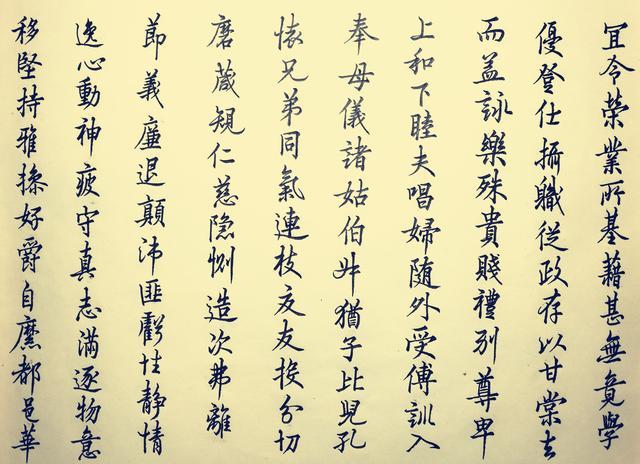 宜令榮業所基藉甚無竟學
優登仕攝職從政存以甘棠去
而益詠樂殊貴賤禮別尊卑
上和下睦夫唱婦随外受傅訓入
奉母儀諸姑伯叔猶子比兒孔
懐兄弟同氣連枝交友投分切
磨箴規仁慈隐惻造次弗離
節義廉退顛沛匪虧性靜情
逸心動神疲守真志滿逐物意
移堅持雅操好爵自縻都邑華